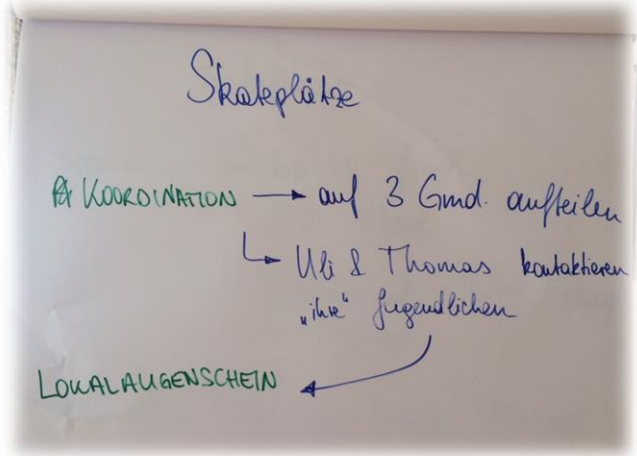 Skateplätze
KOORDINATION → auf 3 Gmd. aufteilen
Uli & Thomas kontaktieren
„ihre" Jugendlichen
LOKALAUGENSCHEIN